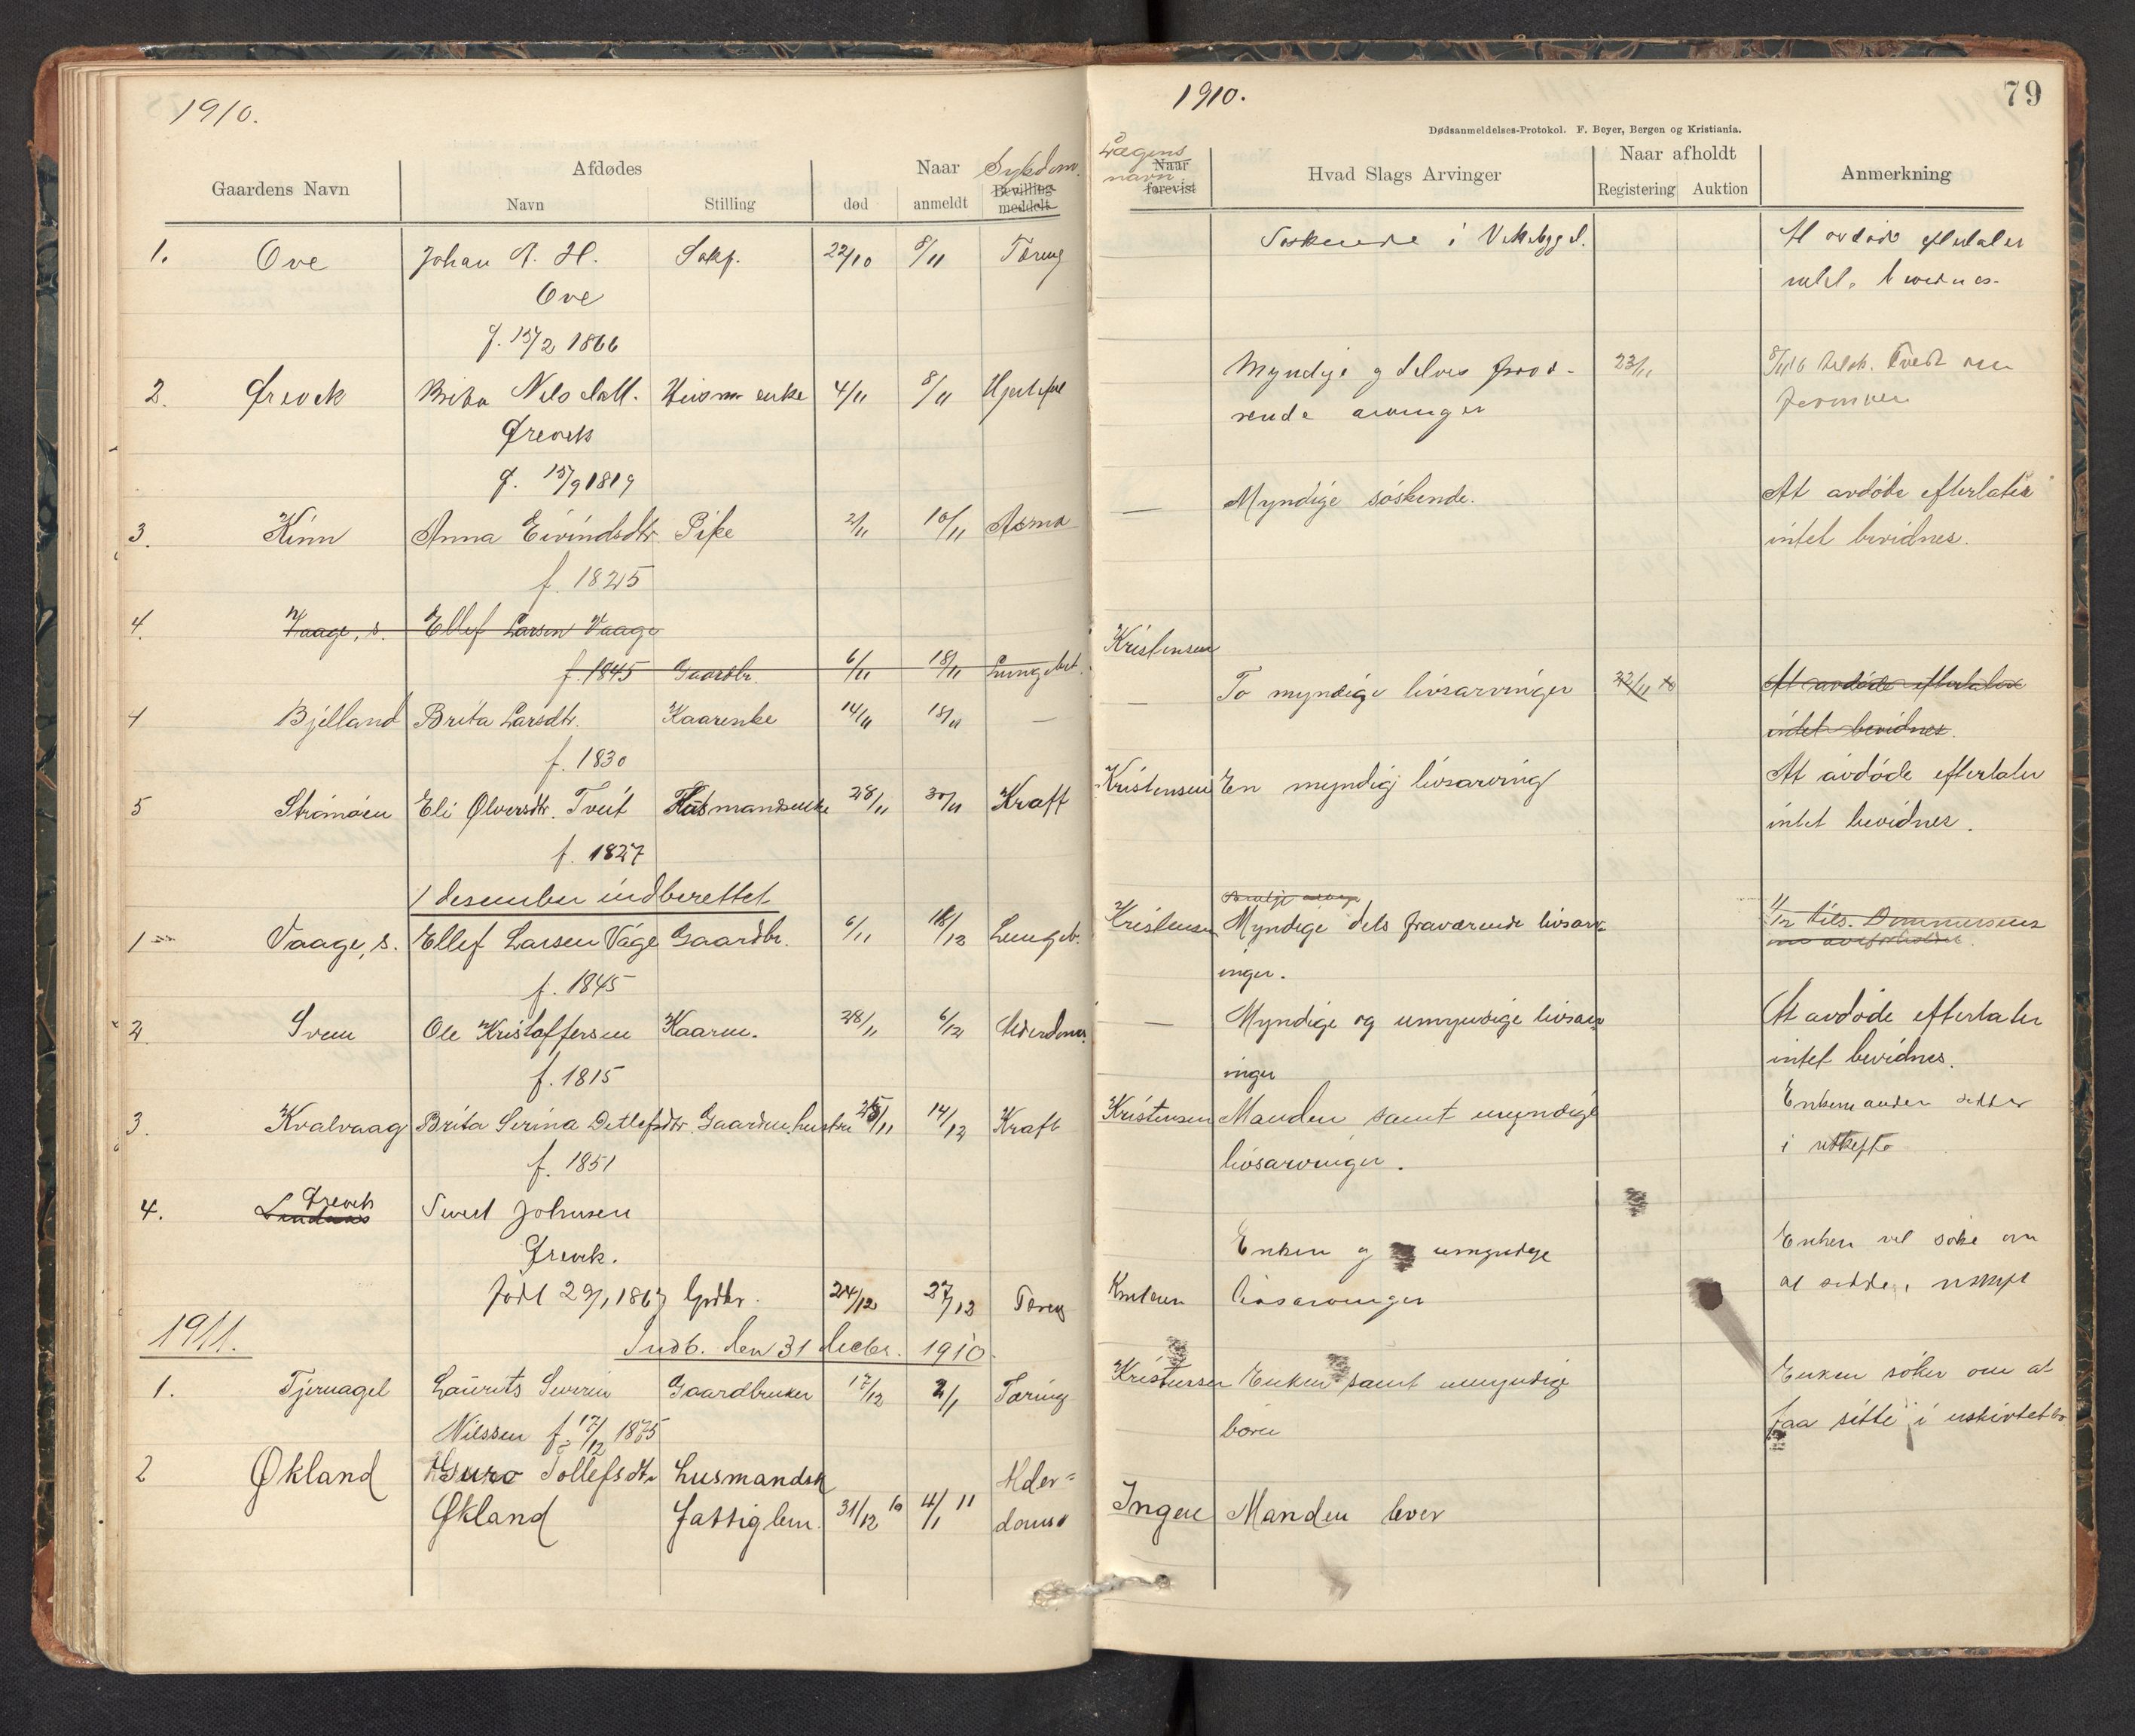 1910.
Afdødes
Naar
Sykdom.
Gaardens Navn
Navn
Stilling
død
anmeldt
Bevilling meddelt
1. Ove Johan A. H. Sakf. 22/10 8/11 Tæring
Ove
f. 15/2 1866
2. Økevik Brita Nilsdatt. Husm. enke 4/11 8/11 Hjertefeil
f. 15/9 1819
3. Kinn Anna Eivindsdtr. Pike 2/11 10/11 Asma
f. 1825
4. Vaage, s. Ellef Larsen Vaage
f. 1845 Gaardbr. 6/11 18/11 Lungebet.
4 Bjelland Brita Larsdtr. Kaarenke 14/11 18/11 —
f. 1830
5 Strømøen Eli Ølversdtr. Tveit Husmandsenke 28/11 30/11 Kraft
f. 1827
1 desember indberettet
1 Vaage, s. Ellef Larsen Våge Gaardbr. 6/11 18/12 Lungeb.
f. 1845
2. Svem Ole Kristoffersen Kaarm. 28/11 6/12 Alderdoms.
f. 1815
3. Kvalvaag Brita Serina Detlefsdtr. Gaardm. hustru 25/11 14/12 Kraft
f. 1851
4. Lindøas Sivert Johnsen
Født 29/1 1867 Grdbr. 24/12 27/12 Tæring
1911.
Indb. den 31 decbr. 1910.
1. Tjernagel Laurits Severin Gaardbruker 17/12 2/1 Tæring
Nilssen f. 17/12 1875
2 Økland Guro Tollefsdtr. husmandsk Alder=
Økland fattiglem. 31/12 10 4/1 11 doms
1910.
79
Dødsanmeldelses-Protokol. F. Beyer, Bergen og Kristiania.
Lægens navn
Naar forevist
Hvad Slags Arvinger
Naar afholdt
Registering
Auktion
Anmerkning
Søskende i Vikebygd. At avdøde efterlater
intet, bevidnes.
Myndige og delvis fravæ- 23/11
rende arvinger
— Myndige søskende. At avdøde efterlater
intet bevidnes.
Kristensen
— To myndige livsarvinger 22/11 10 At avdøde efterlater
intet bevidnes.
Kristensen En myndig livsarving At avdøde efterlater
intet bevidnes.
Kristensen Myndige dels fraværende livsarv-
inger.
— Myndige og umyndige livsarv At avdøde efterlater
inger intet bevidnes.
Kristensen Manden samt myndige Enkemanden sidder
livsarvinger. i uskifte
Enken og umyndige Enken vil søke om
livsarvinger at sidde i uskifte
Kristensen Enken samt umyndige Enken søker om at
børn faa sitte i uskiftet bo
Ingen Manden lever